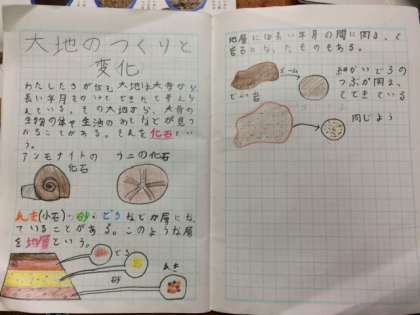 大地のつくりと
変化
わたしたちが住む大地は大昔から
長い年月をかけてできたと考えら
れている。その大地から、大昔の
生物の体や生活のあとなどが見つ
かることがある。それを化石とい
う。
アンモナイトの
化石
ウニの化石
れき(小石)・砂・どろなどが層にな
っていることがある。このような層
を地層という。
どろ
砂
れき
地層には長い年月の間に固まって
岩石になったものもある。
ズーム
でい岩
細かいどろの
つぶが固まっ
てできている
同じよう